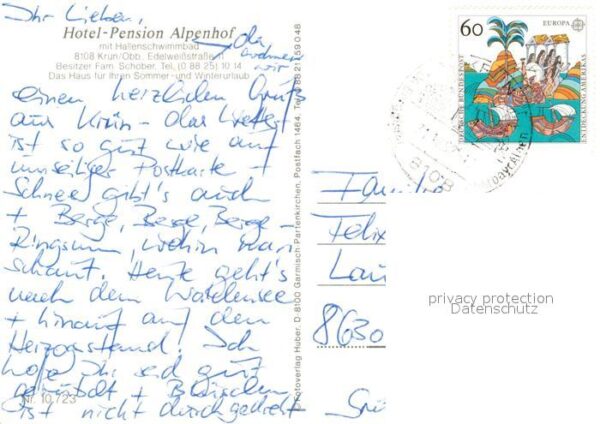 Ihr Lieben,
Hotel-Pension Alpenhof
mit Hallenschwimmbad
8108 Krün/Obb. Edelweißstraße 11
Besitzer Fam. Schober, Tel. (0 88 25) 10 14
Das Haus für Ihren Sommer- und Winterurlaub
da
wohnen
wir
einen herzlichen Gruß
aus Krün - das Wetter
ist so gut wie auf
umseitiger Postkarte -
Schnee gibt's auch
+ Berge, Berge, Berge -
Ringsum, wohin man
schaut. Heute geht's
nach dem Walchensee
+ hinauf auf den
Herzogstand. Ich
hoffe Ihr seid gut
+
ist nicht durchgedreht
Nr. 10.723
Fotoverlag Huber, D-8100 Garmisch-Partenkirchen, Postfach 1464, Tel. 0 88 21/59 0 48
60
EUROPA
DEUTSCHE BUNDESPOST
ENTDECKUNG AMERIKAS
8108
Familie
Felix
Lau
8630
privacy protection
Datenschutz